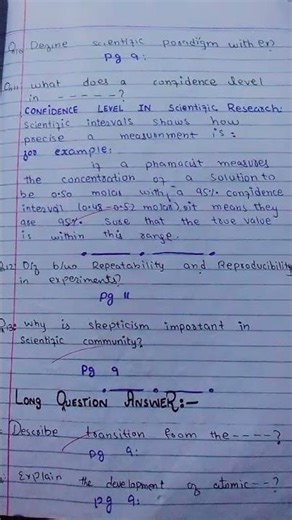 Q:10 Define scientific Paradigm with ex?
Pg 9:
Q:11: what does a confidence level
in - - - - - ?
CONFIDENCE LEVEL IN Scientific Research:
Scientific intervals shows how
precise a measurnment is:
for example:
if a phamacist measures
the concentration of a solution to
be 0.50 molar with a 95% confidence
interval (0.48-0.52 molar), it means they
are 95% Sure that the true value
is within this range.
Q:12: D/f b/w Repeatability and Reproducibility
in experiments?
Pg 11
Q:13: why is skepticism important in
scientific community?
Pg 9
LONG QUESTION ANSWER:-
Describe transition from the - - - - ?
pg 9:
Explain the development of atomic - - ?
pg 9: